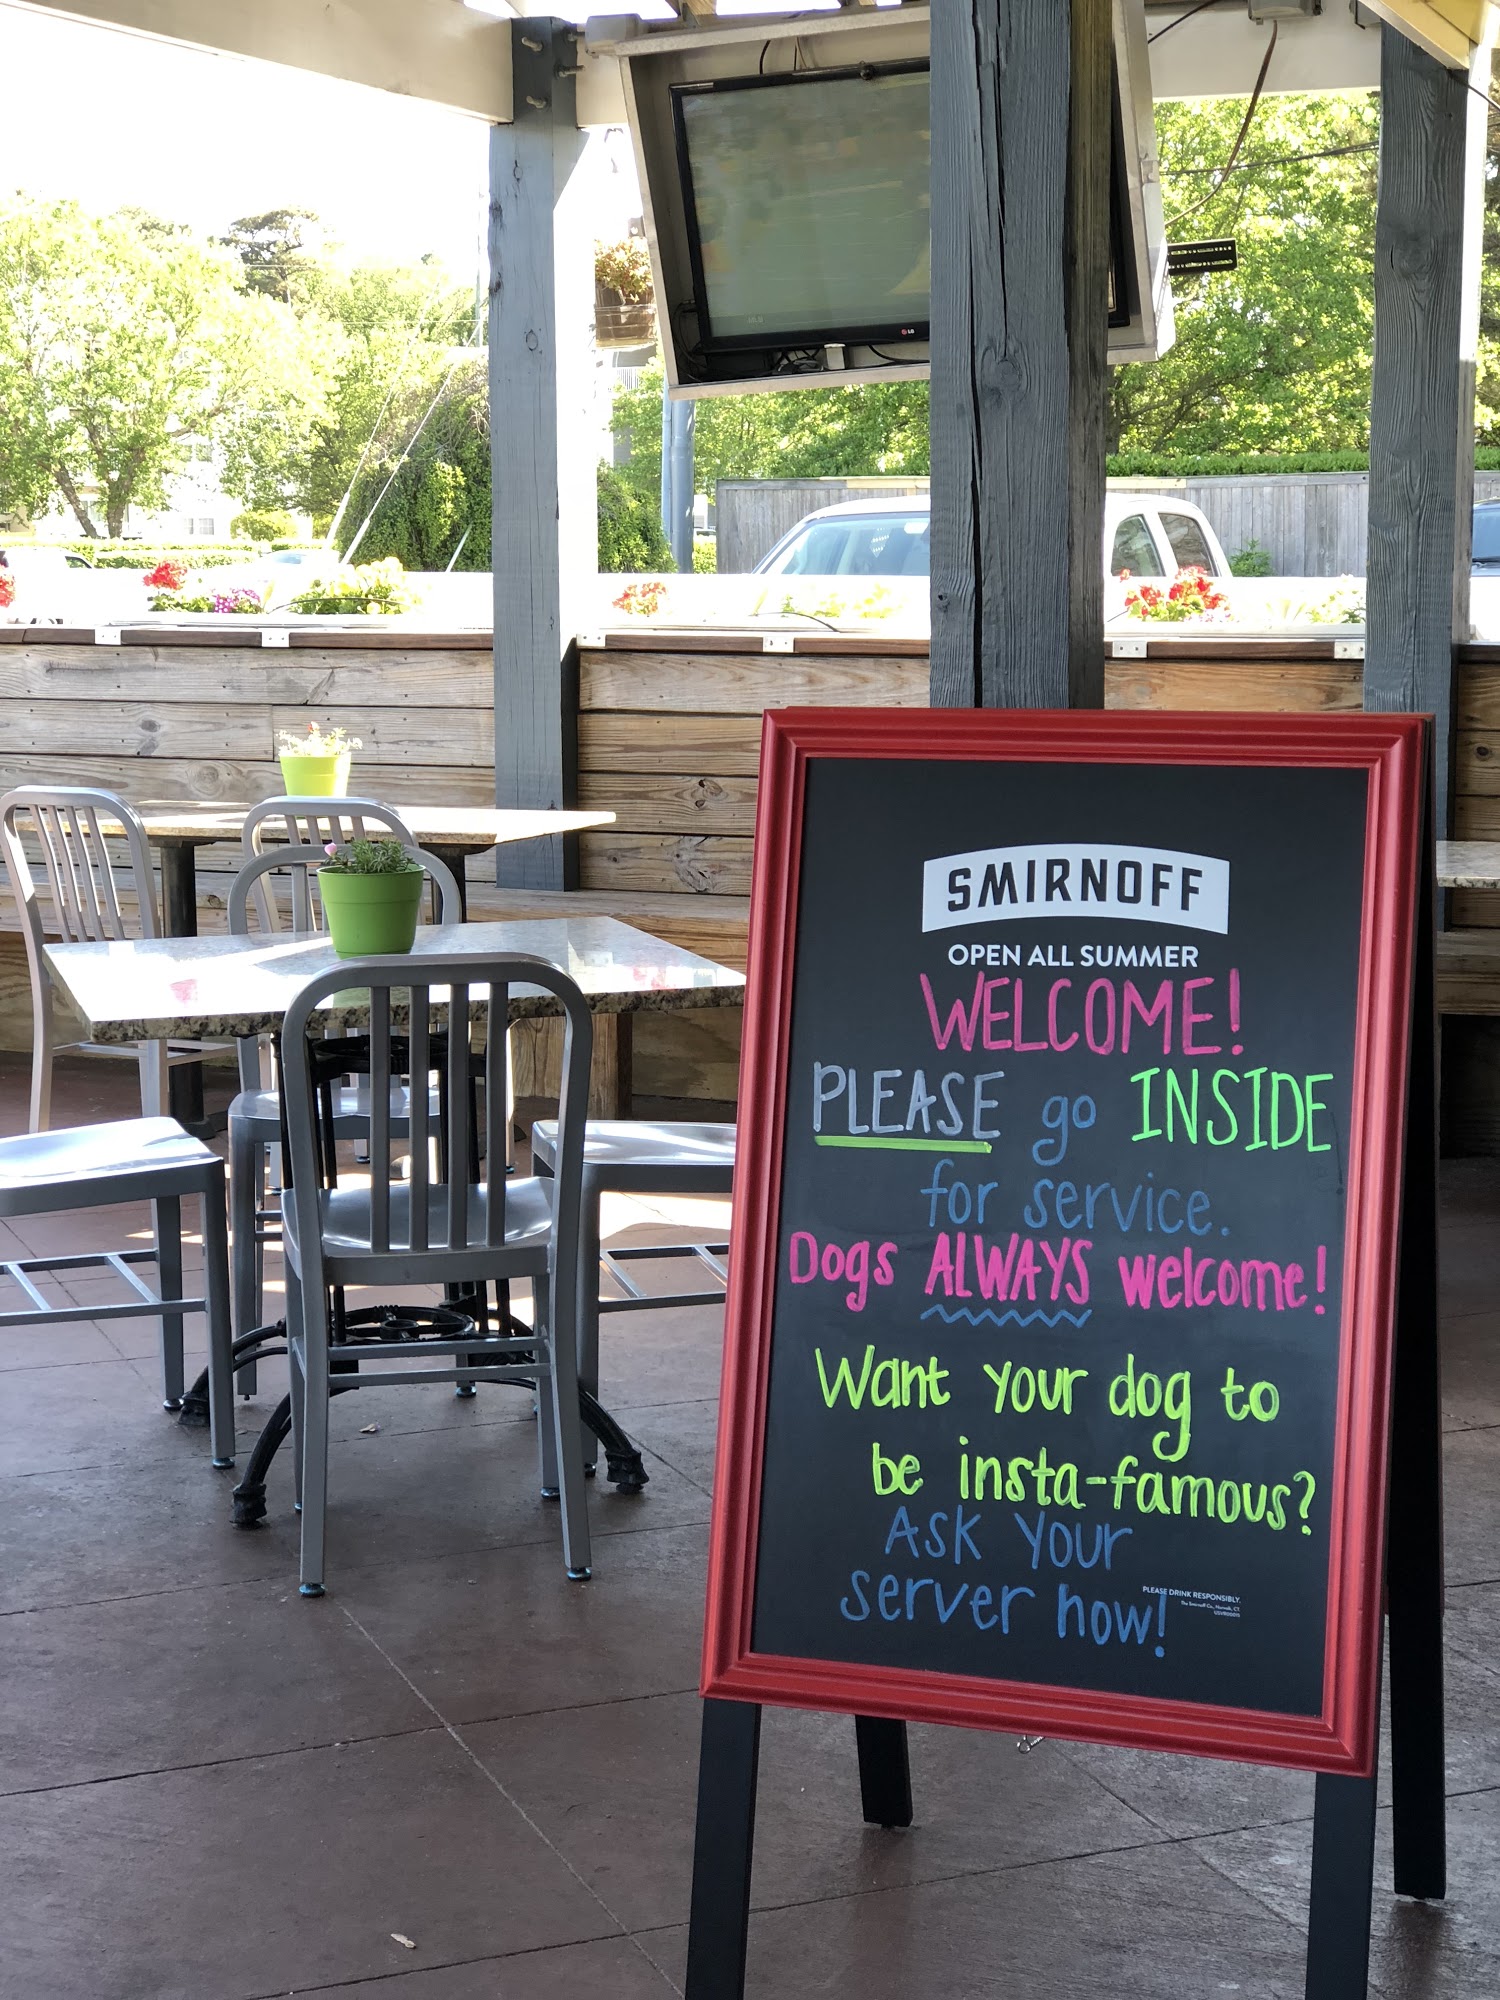 LG
SMIRNOFF
OPEN ALL SUMMER
WELCOME!
PLEASE go INSIDE
for service.
Dogs ALWAYS welcome!
Want your dog to
be insta-famous?
Ask your
server how!
PLEASE DRINK RESPONSIBLY.
The Smirnoff Co., Norwalk, CT.